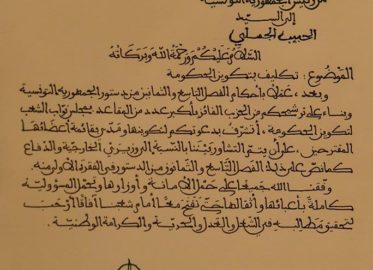 من رئيس الجمهورية التونسية
إلى السيد
الحبيب الجملي
السلام عليكم ورحمة الله وبركاته
الموضوع : تكليف بتكوين الحكومة
وبعد، عملا بأحكام الفصل التاسع والثمانين من دستور الجمهورية التونسية
وبناء على ترشيحكم من الحزب الفائز بأكبر عدد من المقاعد بمجلس نواب الشعب
لتكوين الحكومة، أتشرف بدعوتكم لتكوينها ومدي بقائمة أعضائها
المقترحين، على أن يتم التشاور بيننا بالنسبة إلى وزيري الخارجية والدفاع
كما نص على ذلك الفصل التاسع والثمانون من الدستور في الفقرة الأولى منه.
وفقنا الله جميعا على حمل الأمانة وأوزارها وتحمل المسؤولية
كاملة بأعبائها وأثقالها حتى نفتح معا أمام شعبنا آفاقا أرحب
لتحقيق مطالبه في الشغل والعدل والحرية والكرامة الوطنية.